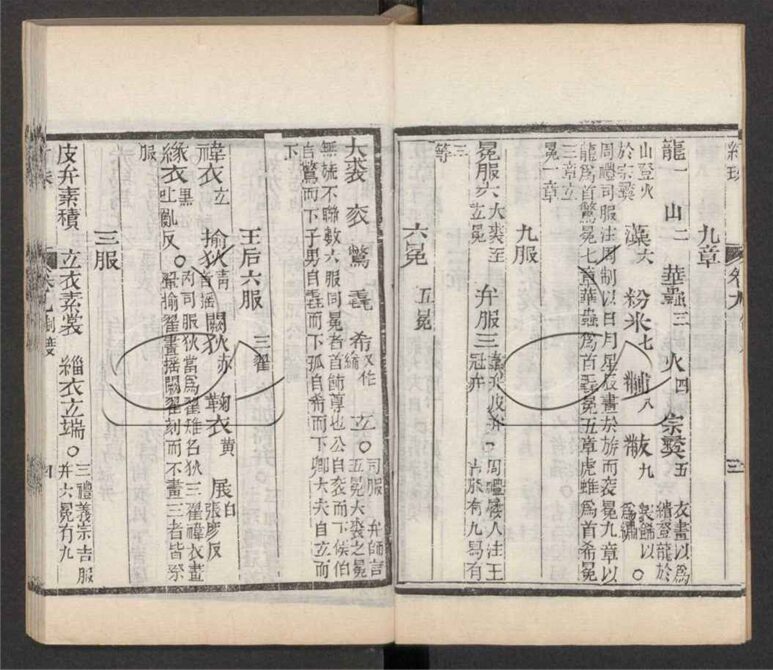 九章
龍一 山二 華蟲三 火四 宗彜五 衣畫以爲
山登火
於宗彜 藻六 粉米七 黼八 黻九
周禮司服注周制以日月星辰畫於旂而袞冕九章以
龍爲首驚冕七章華蟲爲首毳冕五章虎蜼爲首希冕
三章玄
冕一章
九服
冕服六大裘至 弁服三 冠弁 周禮 注王
吉服有九冕有
三
等
六冕 五冕
大裘 袞 驚 毳 希又作 玄 司服 弁師言
五冕大裘之冕
無旒不聯數六服同冕者首飾尊也公自袞而下侯伯
自驚而下子男自毳而下孤自希而下卿大夫自玄而
下
王后六服 三翟
褘衣玄 揄狄青 闕狄赤 鞠衣黄 展白 張彦反
緣衣黑 吐亂反 司服狄當爲翟雉名狄三翟褘衣畫
翬揄翟畫搖闕翟刻而不畫三者皆祭
服
三服
皮弁素積 玄衣素裳 緇衣玄端 三禮義宗吉服
弁六冕有九